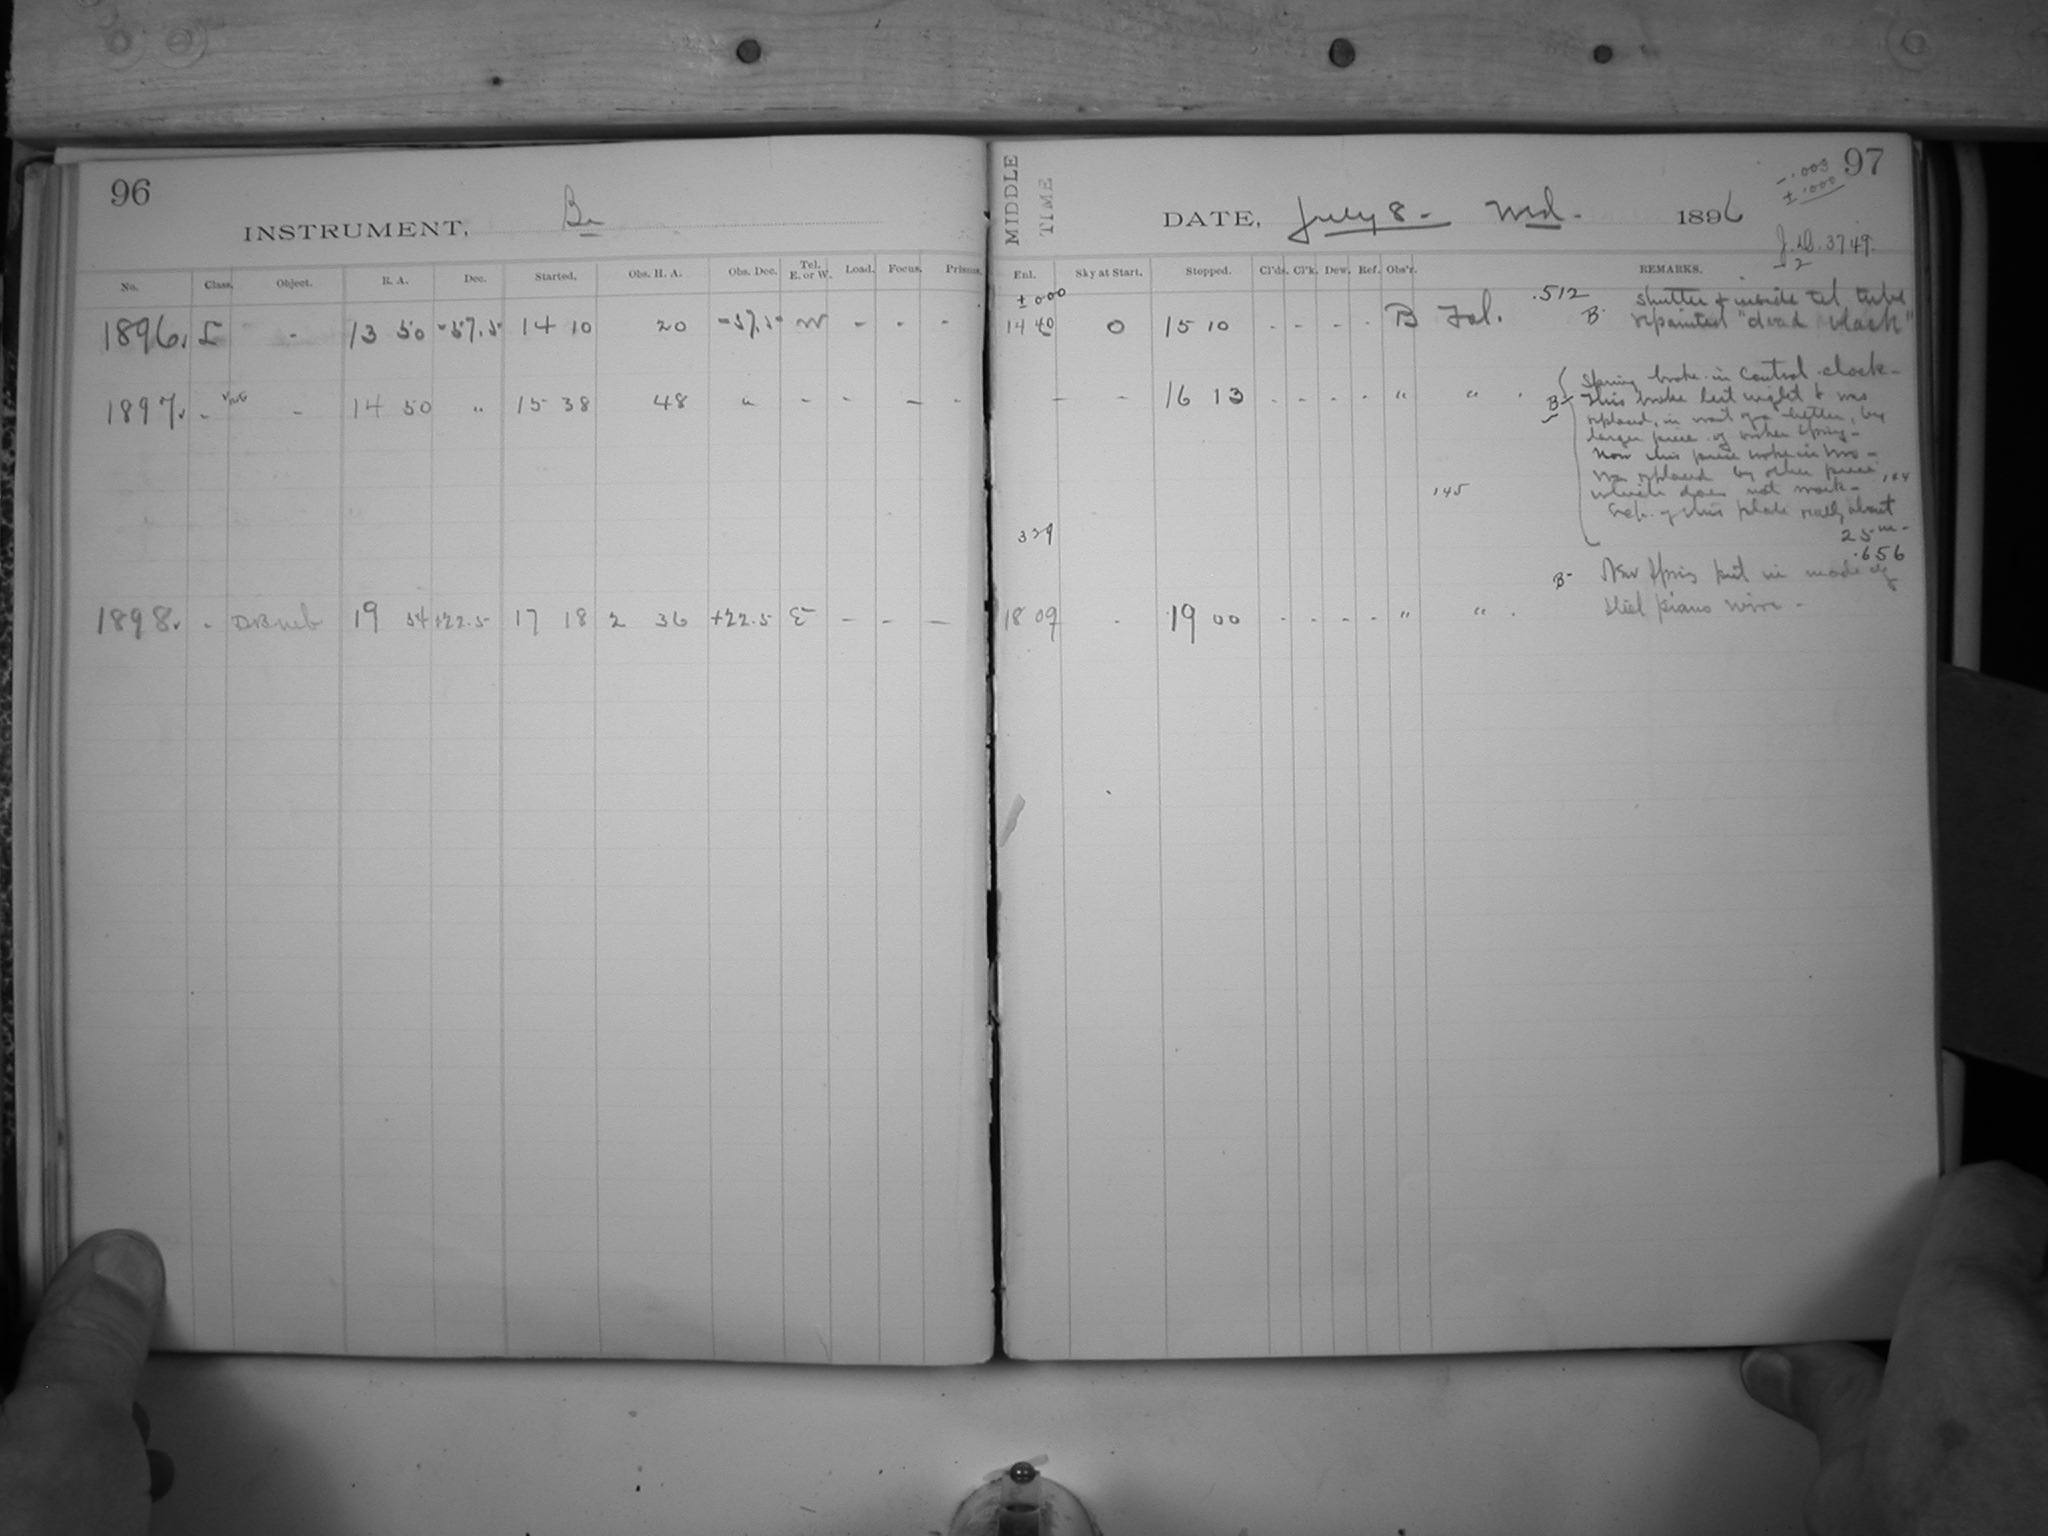 96
INSTRUMENT,
No. Class. Object. R. A. Dec. Started. Obs. H. A. Obs. Dec. Tel. E. or W. Load. Focus. Prisms.
1896. L - 13 50 -57.5 14 10 20 -57.5 W - - -
1897. - - 14 50 " 15 38 48 " - - - -
1898. - 19 54 +22.5 17 18 2 36 +22.5 E - - -
MIDDLE TIME
97
-.003
±.000
DATE, July 8 - Wed - 1896
J.D. 3749.
-2
Exl. Sky at Start. Stopped. Cl'ds. Cl'k. Dew. Ref. Obs'r. REMARKS.
±000
14 40 0 15 10 - - - - B Jal. .512 B- Shutter & inside tel. tube
repainted "dead black"
- - 16 13 - - - - " " . B- Spring broke in Control clock -
This broke last night & was
replaced, in want of a better, by
larger piece of broken spring -
Now this piece broke in two -
was replaced by other piece
which does not work -
145
Exp. of this plate really about
25 m -
329
.656
B- New spring put in made of
steel piano wire -
18 09 - 19 00 - - - - " " .